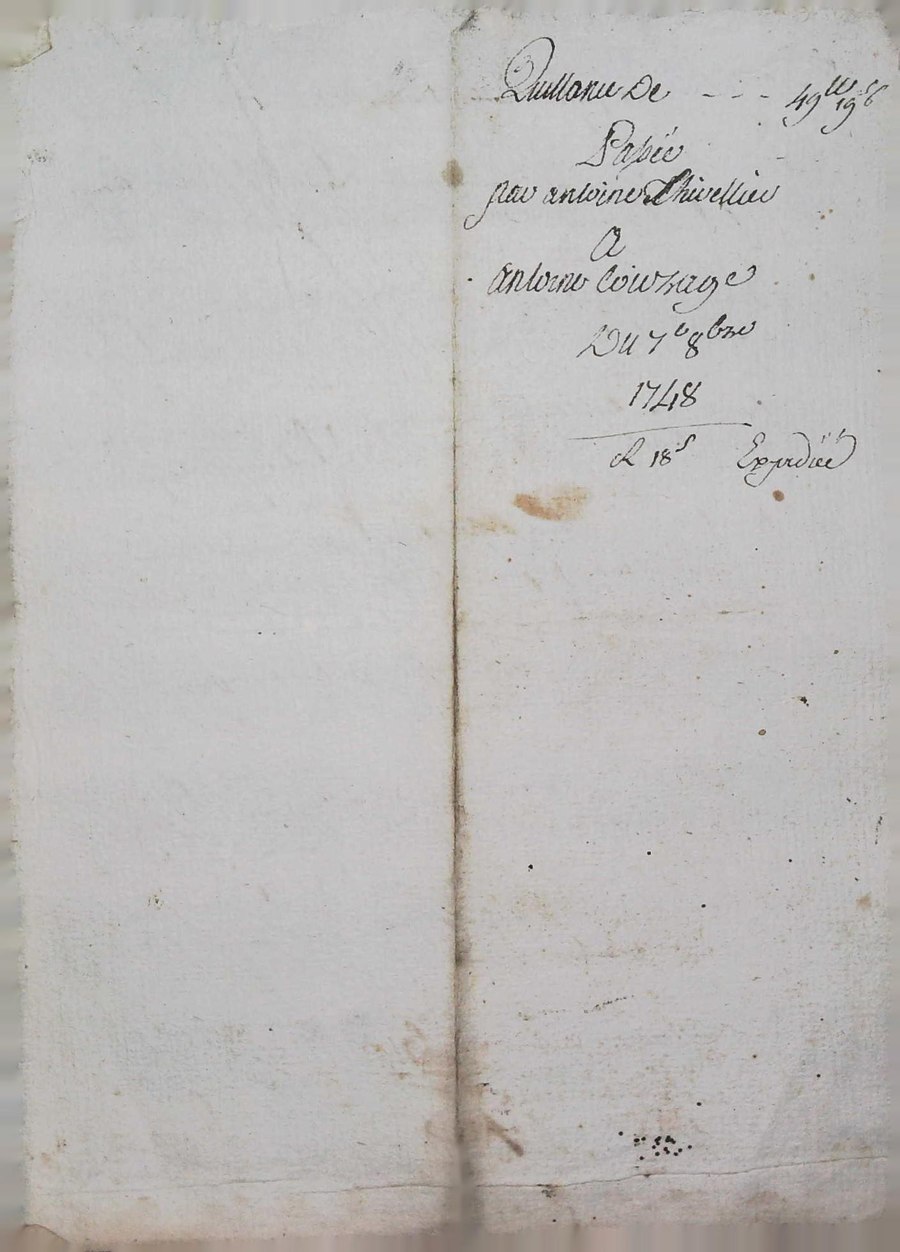 Quittance De --- 49ᵗᵗ 19ˢ 6
Passée
par antoine Thivellier
A
antoine Courage
Du 7ᵉ 8bre
1748
R 18ˢ Expediée